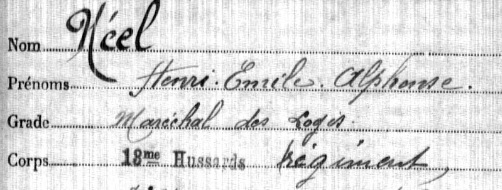 Nom Néel
Prénoms Henri Emile Alphonse.
Grade Maréchal des Logis.
Corps 13me Hussards Régiment